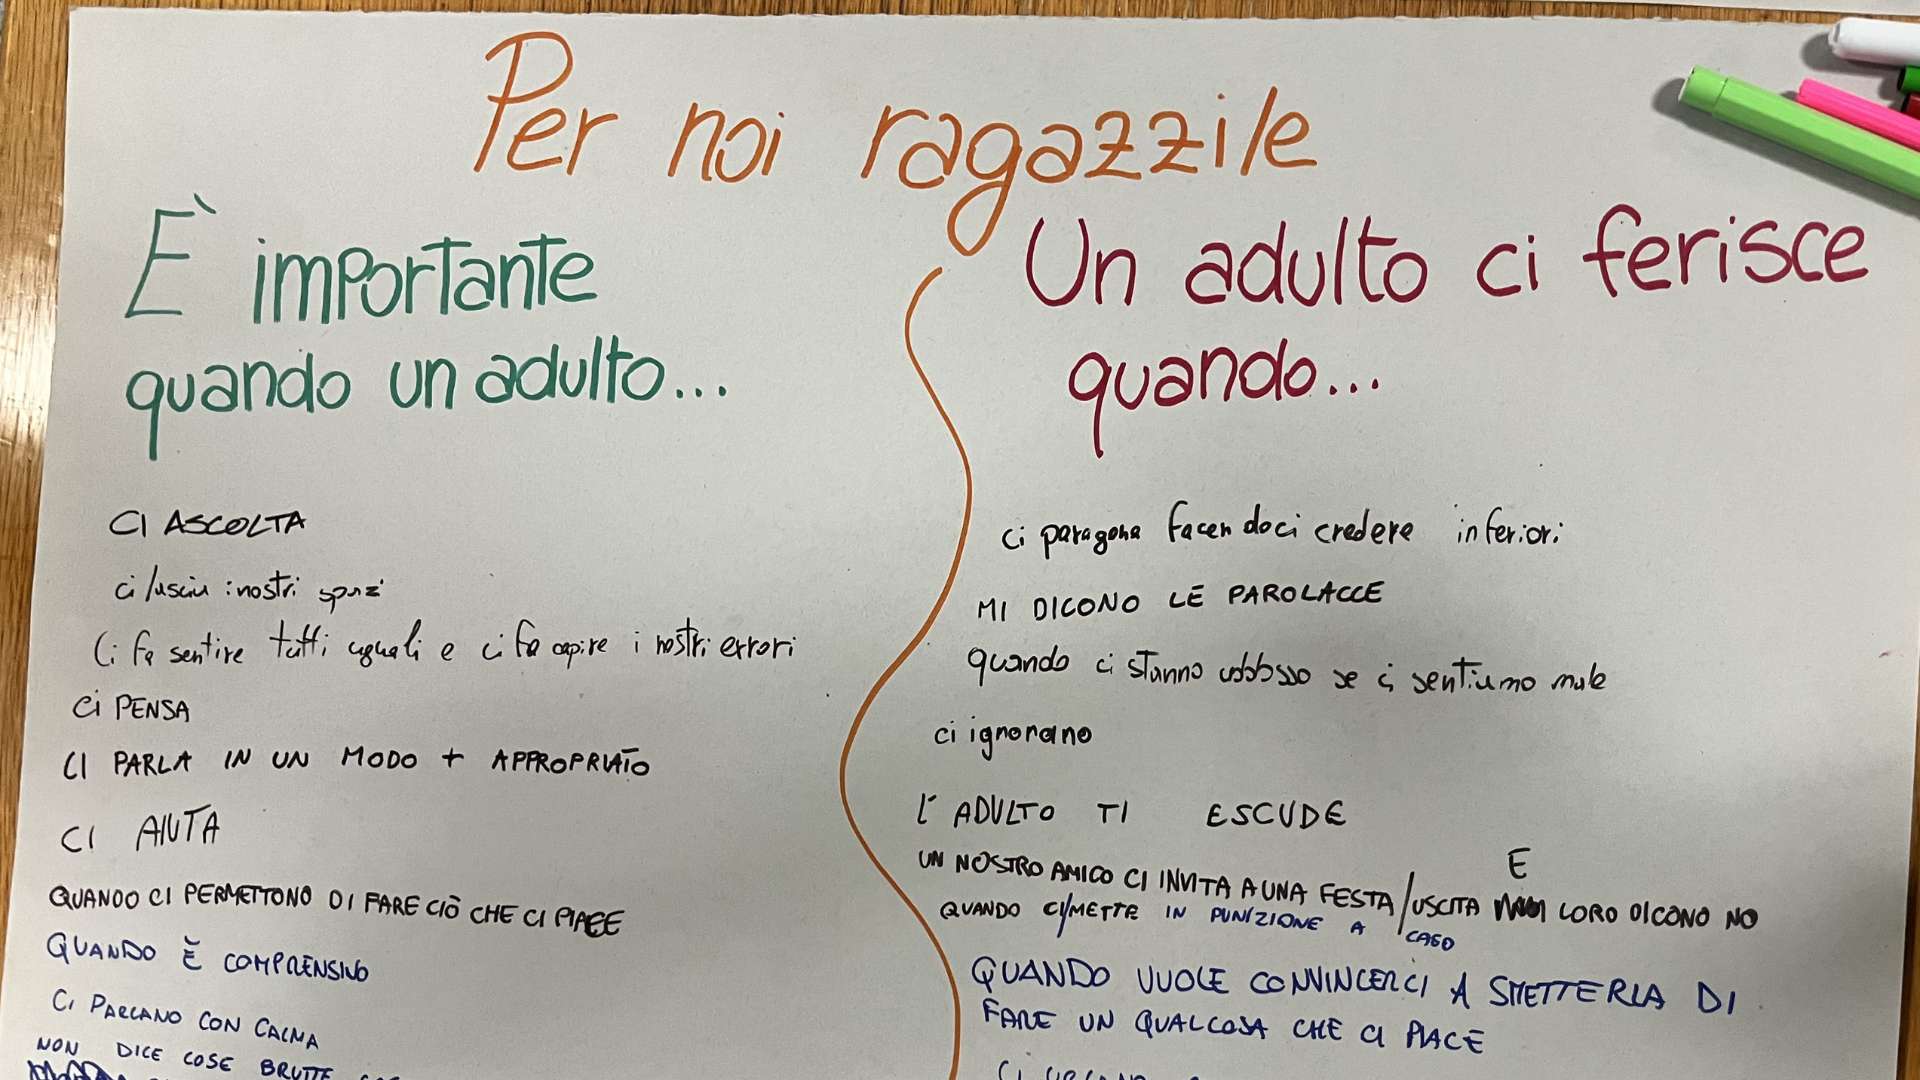 Per noi ragazzi/e
È importante
quando un adulto...
CI ASCOLTA
ci lascia i nostri spazi
Ci fa sentire tutti uguali e ci fa capire i nostri errori
Ci PENSA
CI PARLA IN UN MODO + APPROPRIATO
CI AIUTA
QUANDO CI PERMETTONO DI FARE CIÒ CHE CI PIACE
QUANDO È COMPRENSIVO
CI PARLANO CON CALMA
NON DICE COSE BRUTTE
Un adulto ci ferisce
quando...
ci paragona facendoci credere inferiori
MI DICONO LE PAROLACCE
quando ci stanno addosso se ci sentiamo male
ci ignorano
L'ADULTO TI ESCUDE
UN NOSTRO AMICO CI INVITA A UNA FESTA/USCITA E LORO DICONO NO
QUANDO CI METTE IN PUNIZIONE A CASO
QUANDO VUOLE CONVINCERCI A SMETTERLA DI
FARE UN QUALCOSA CHE CI PIACE